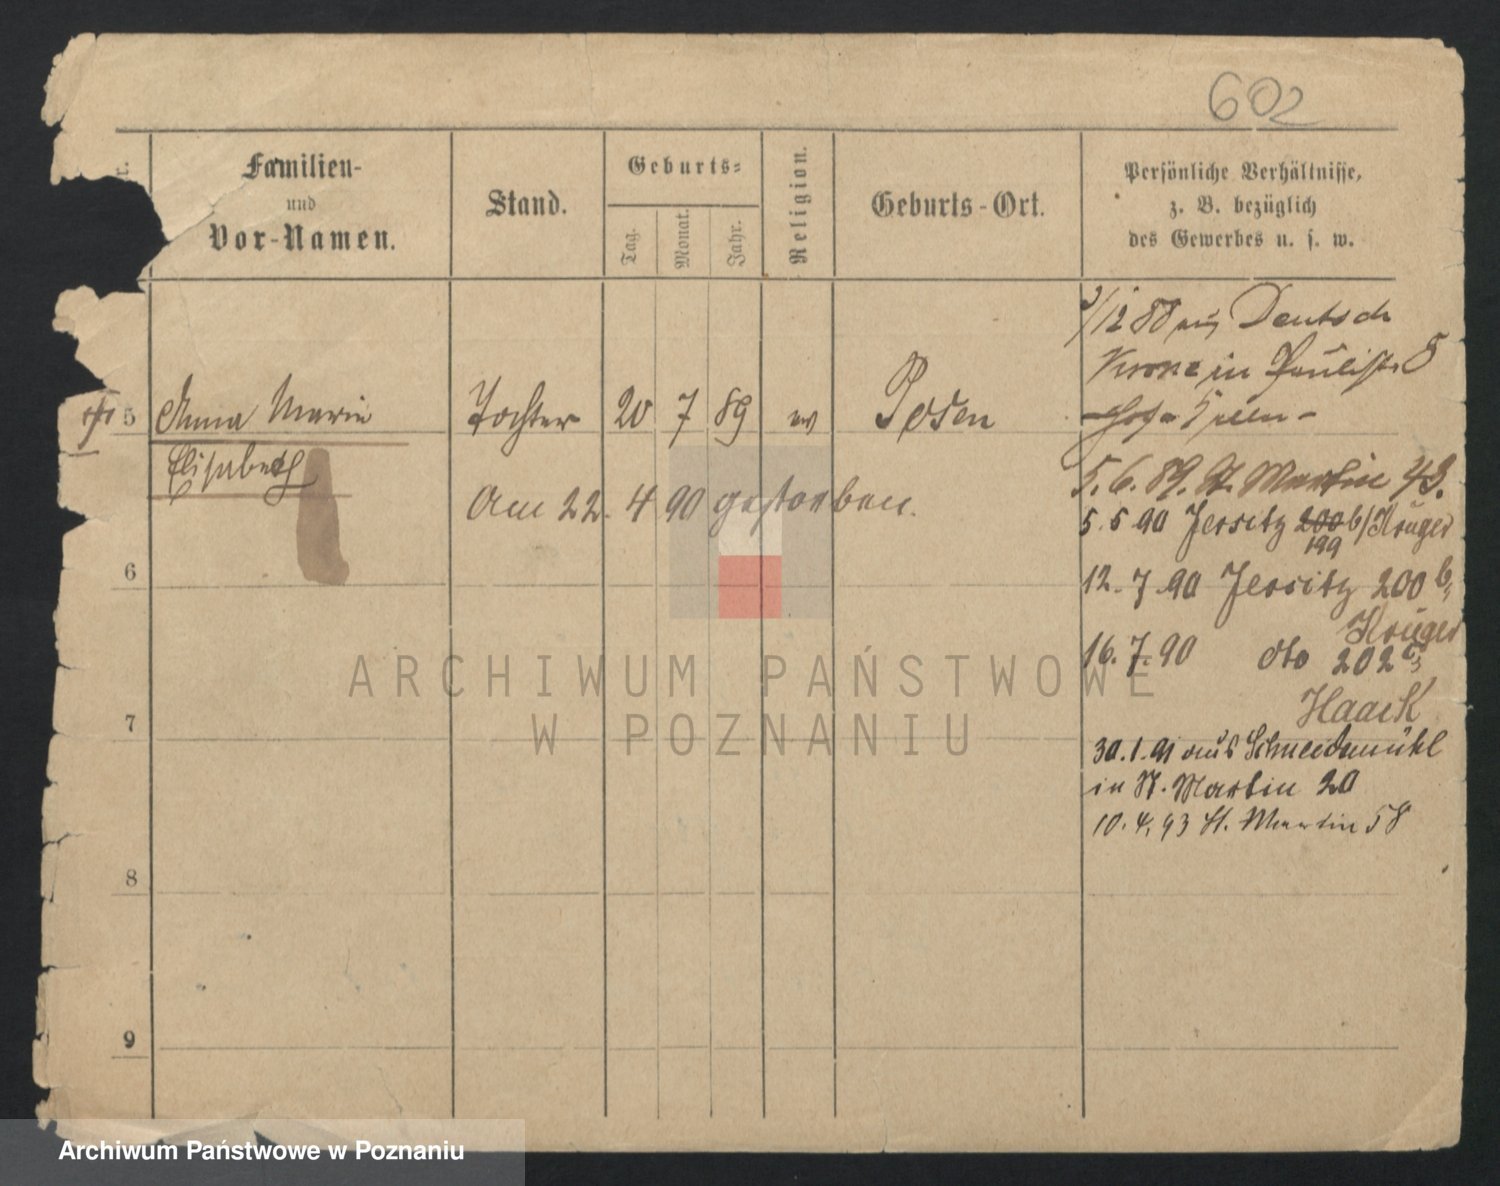 602
Familien-
und
Vor-Namen.
Stand.
Geburts-
Tag.
Monat.
Jahr.
Religion.
Geburts-Ort.
Persönliche Verhältnisse,
z. B. bezüglich
des Gewerbes u. s. w.
/12 88 aus Deutsch
Krone in Paulistr 8
5 Anna Marie Tochter 20 7 89 ev Posen
Elisabeth
Am 22. 4 90 gestorben.
5. 6. 89. St. Martin 43.
5. 5 90 Jersitz 200 b/ Krüger
199
6
12. 7 90 Jersitz 200 b,
Krüger
16. 7. 90 dto 202 b,
Haack
7
30. 1. 91 aus Schneidemühl
in St. Martin 20
10. 4. 93 St. Martin 58
8
9
ARCHIWUM PAŃSTWOWE
W POZNANIU
Archiwum Państwowe w Poznaniu